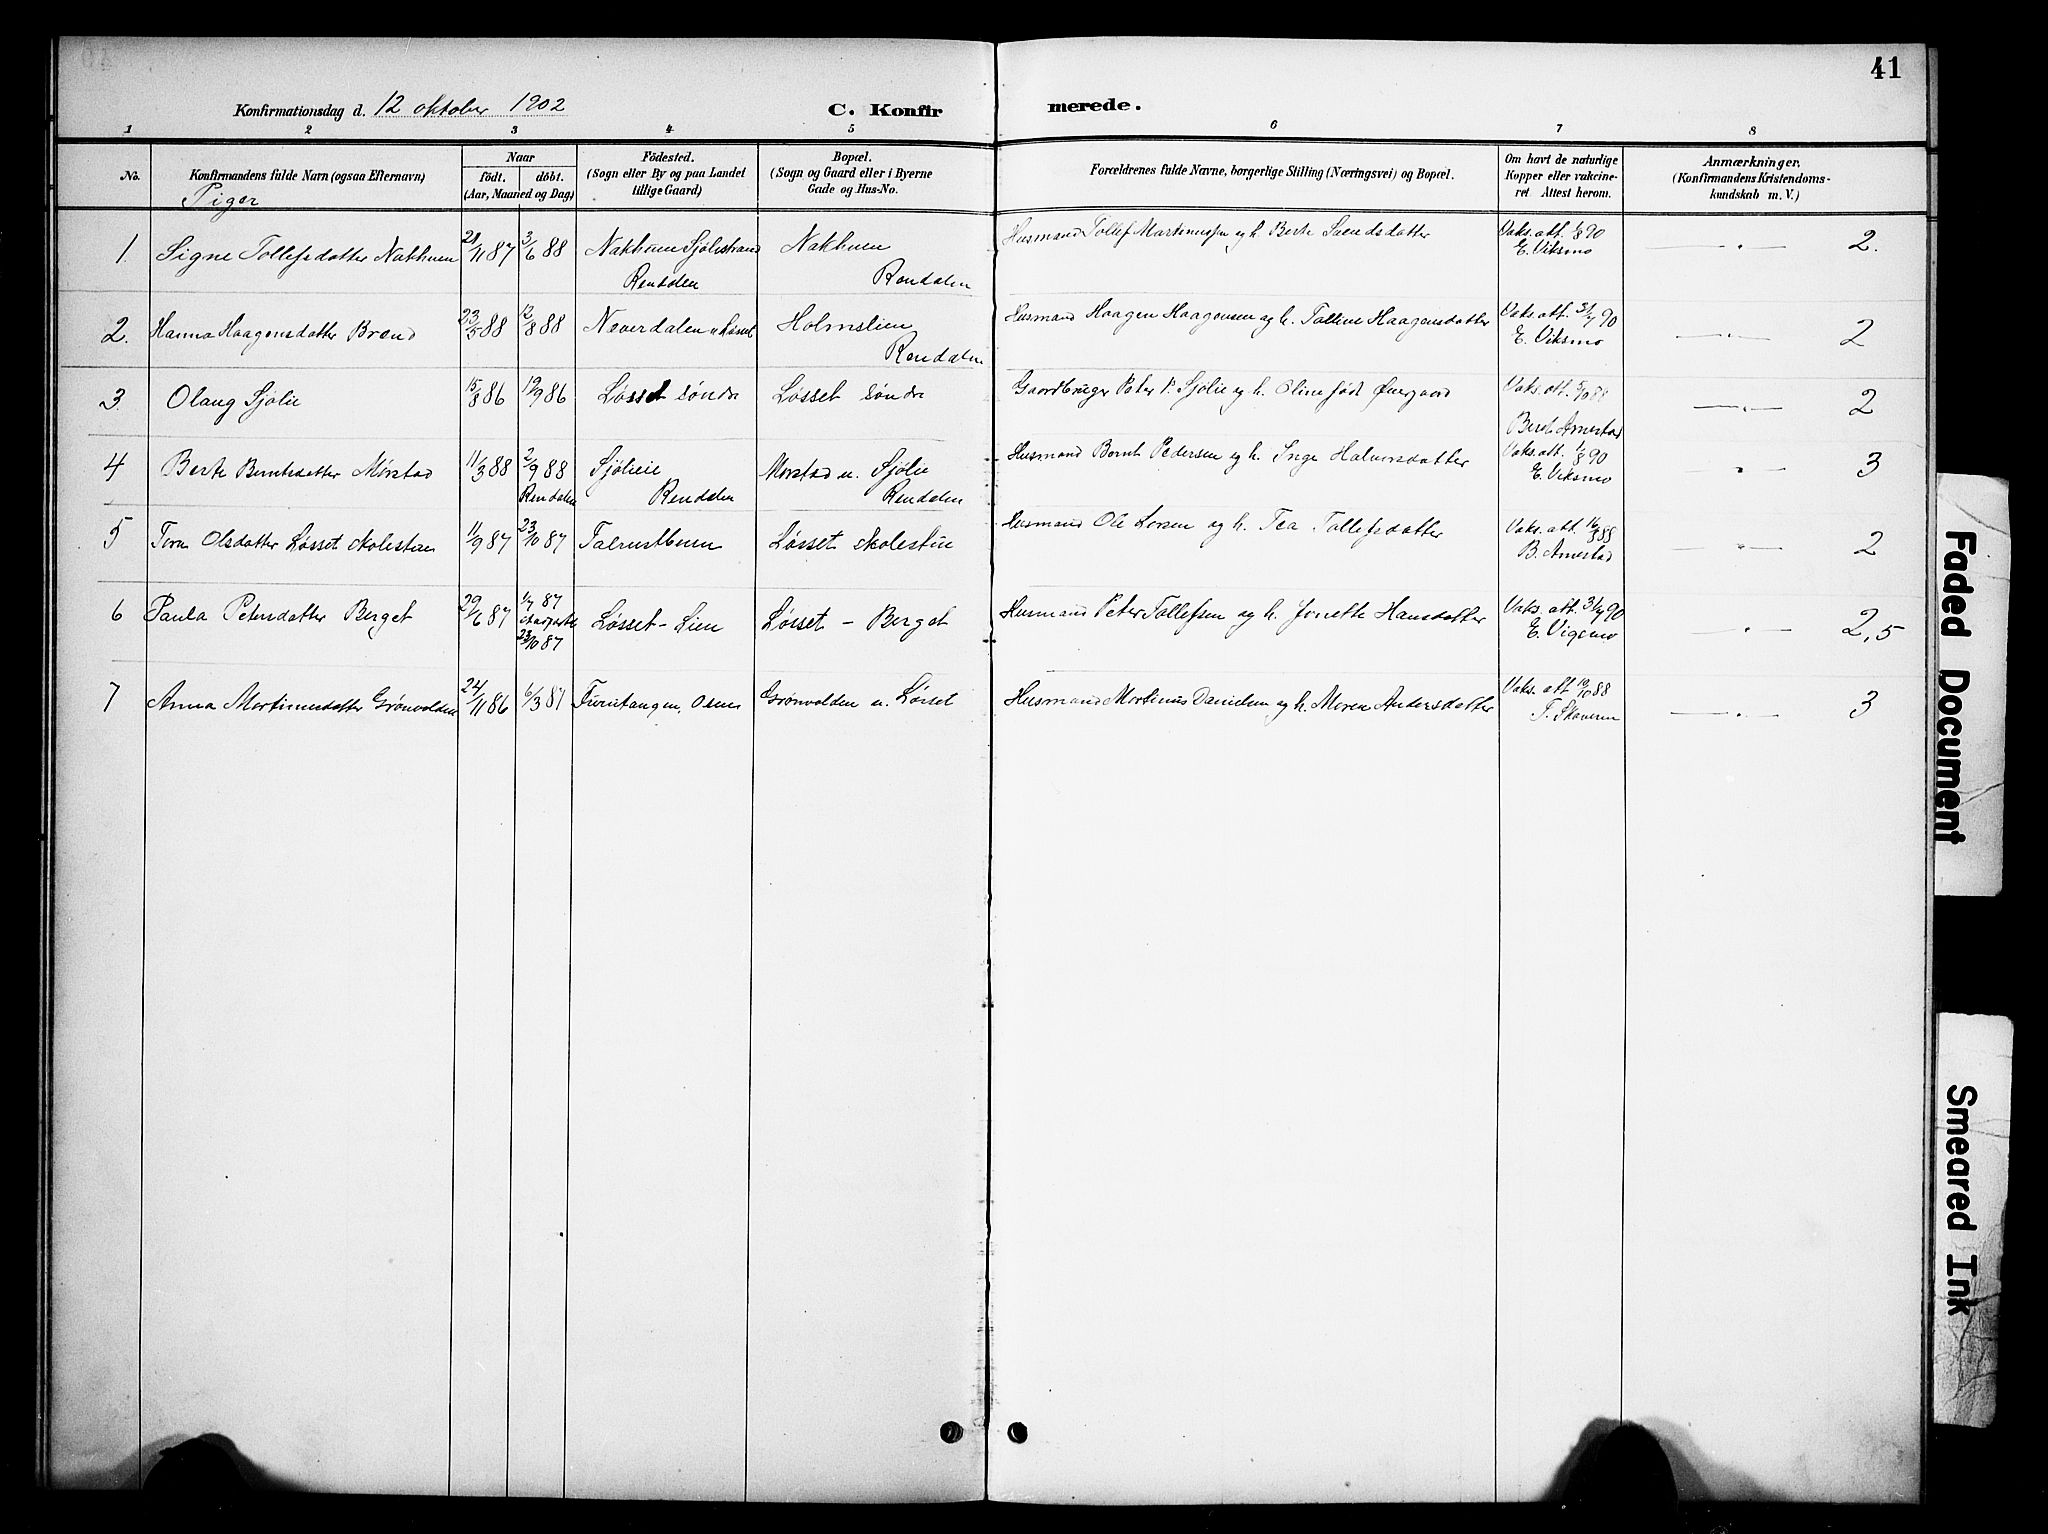 41
Konfirmationsdag d. 12 oktober 1902
C. Konfirmerede.
1 2 3 4 5 6 7 8
No.
Konfirmandens fulde Navn (ogsaa Efternavn)
Piger
Naar
födt. döbt.
(Aar, Maaned og Dag)
Födested.
(Sogn eller By og paa Landet
tillige Gaard)
Bopæl.
(Sogn og Gaard eller i Byerne
Gade og Hus-No.
Forældrenes fulde Navne, borgerlige Stilling (Næringsvei) og Bopæl.
Om havt de naturlige
Kopper eller vakcine-
ret Attest herom.
Anmærkninger.
(Konfirmandens Kristendoms-
kundskab m. V.)
1. Signe Tollefsdatter Nakhuen 21/11 87 3/6 88 Nakhuen Sjølistrand Rendalen Nakhuen Rendalen Husmand Tollef Martinussen og h. Berte Svendsdatter Vaks. att. 1/8 90 E. Viksmo — " — 2.
2. Hanna Haagensdatter Brænd 23/5 88 12/8 88 Næverdalen u. Løsset Holmslien Rendalen Husmand Haagen Haagensen og h. Tolline Haagensdatter Vaks. att. 31/7 90 E. Viksmo — " — 2
3. Olaug Sjølie 15/8 86 19/9 86 Løsset søndre Løsset søndre Gaardbruger Peter P. Sjølie og h. Oline født Øvergaard Vaks. att. 5/10 88 Bersv. Arnestad — " — 2
4 Berte Berntsdatter Mørstad 11/3 88 2/9 88 Rendalen Sjølieie Rendalen Mørstad u. Sjølie Rendalen Husmand Bernt Pedersen og h. Inge Halvorsdatter Vaks. att. 1/8 90 E. Viksmo — " — 3
5 Tora Olsdatter Løsset skolestue 11/9 87 23/10 87 Løsset skolestue Husmand Ole Larsen og h. Tea Tollefsdatter Vaks. att. 88 B. Arnestad — " — 2
6 Paula Petersdatter Berget 29/6 87 1/7 87 23/10 87 Løsset - Lien Løsset - Berget Husmand Peter Tollefsen og h. Jonette Hansdatter Vaks. att. 31/7 90 E. Vigsmo — " — 2,5
7 Anna Martinusdatter Grønvolden 24/11 86 6/3 87 Furutangen, Osen Grønvolden u. Løsset Husmand Martinus Danielsen og h. Maren Andersdatter Vaks. att. 19/10 88 T. Skaveren — " — 3
Faded Document
Smeared Ink